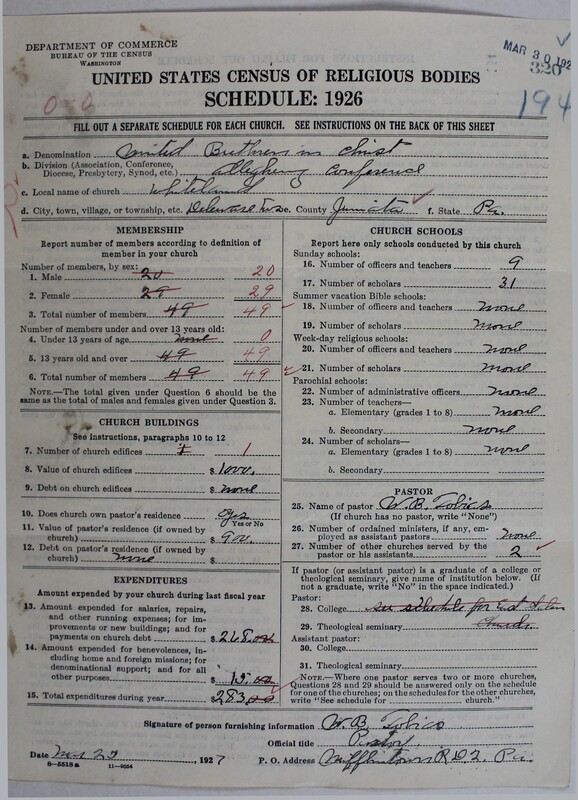 DEPARTMENT OF COMMERCE
BUREAU OF THE CENSUS
WASHINGTON
MAR 30 192
320
194
UNITED STATES CENSUS OF RELIGIOUS BODIES
SCHEDULE: 1926
FILL OUT A SEPARATE SCHEDULE FOR EACH CHURCH. SEE INSTRUCTIONS ON THE BACK OF THIS SHEET
a. Denomination United Brethren in Christ
b. Division (Association, Conference, Diocese, Presbytery, Synod, etc.) Allegheny Conference
c. Local name of church Whiteland
d. City, town, village, or township, etc. Delaware Twp e. County Juniata f. State Pa.
MEMBERSHIP
Report number of members according to definition of
member in your church
Number of members, by sex:
1. Male 20 20
2. Female 29 29
3. Total number of members 49 49
Number of members under and over 13 years old:
4. Under 13 years of age none 0
5. 13 years old and over 49 49
6. Total number of members 49 49
NOTE.—The total given under Question 6 should be
same as the total of males and females given under Question 3.
CHURCH BUILDINGS
See instructions, paragraphs 10 to 12
7. Number of church edifices 1 1
8. Value of church edifices $ 1000.
9. Debt on church edifices $ none
10. Does church own pastor's residence yes
Yes or No
11. Value of pastor's residence (if owned by
church) $ 900.
12. Debt on pastor's residence (if owned by
church) none $
EXPENDITURES
Amount expended by your church during last fiscal year
13. Amount expended for salaries, repairs,
and other running expenses; for im-
provements or new buildings; and for
payments on church debt $ 268.00
14. Amount expended for benevolences, in-
cluding home and foreign missions; for
denominational support; and for all
other purposes $ 15.00
15. Total expenditures during year $ 283.00
CHURCH SCHOOLS
Report here only schools conducted by this church
Sunday schools:
16. Number of officers and teachers 9
17. Number of scholars 31
Summer vacation Bible schools:
18. Number of officers and teachers none
19. Number of scholars none
Week-day religious schools:
20. Number of officers and teachers none
21. Number of scholars none
Parochial schools:
22. Number of administrative officers none
23. Number of teachers—
a. Elementary (grades 1 to 8) none
b. Secondary none
24. Number of scholars—
a. Elementary (grades 1 to 8) none
b. Secondary
PASTOR
25. Name of pastor W. B. Tobias
(If church has no pastor, write "None")
26. Number of ordained ministers, if any, em-
ployed as assistant pastors none
27. Number of other churches served by the
pastor or his assistants 2
If pastor (or assistant pastor) is a graduate of a college or
theological seminary, give name of institution below. (If
not a graduate, write "No" in the space indicated.)
Pastor:
28. College see schedule for East Salem
29. Theological seminary Church
Assistant pastor:
30. College
31. Theological seminary
NOTE.—Where one pastor serves two or more churches,
Questions 28 and 29 should be answered only on the schedule
for one of the churches; on the schedules for the other churches,
write "See schedule for church."
Signature of person furnishing information W. B. Tobias
Official title Pastor
Date 1927 P. O. Address Mifflintown R.D. 2. Pa.
8—5518a 11—9554